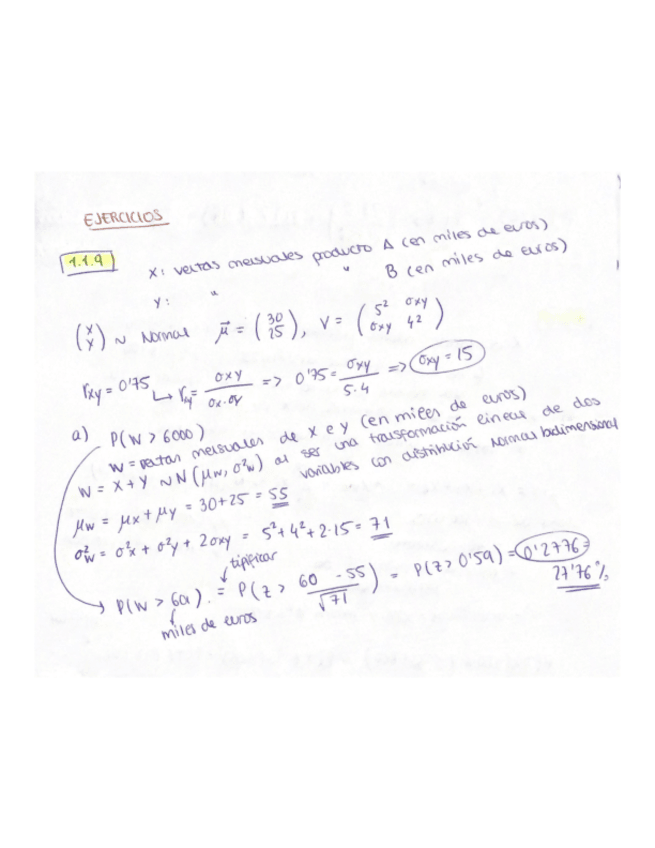 EJERCICIOS
1.1.9
X: ventas mensuales producto A (en miles de euros)
Y: " " B (en miles de euros)
(X Y) ~ Normal μ⃗ = (30 25), V = (5² σxy σxy 4²)
rxy = 0'75 ↳ rxy = σxy / σx·σy => 0'75 = σxy / 5·4 => σxy = 15
a) P(W > 6000)
W = ventas mensuales de X e Y (en miles de euros)
W = X + Y ~ N(μw, σ²w) al ser una trasformación lineal de dos
variables con distribución normal bidimensional
μw = μx + μy = 30 + 25 = 55
σ²w = σ²x + σ²y + 2σxy = 5² + 4² + 2·15 = 71
tipificar
P(W > 60) = P(Z > 60 - 55 / √71) = P(Z > 0'59) = 0'2776 =
27'76%
miles de euros